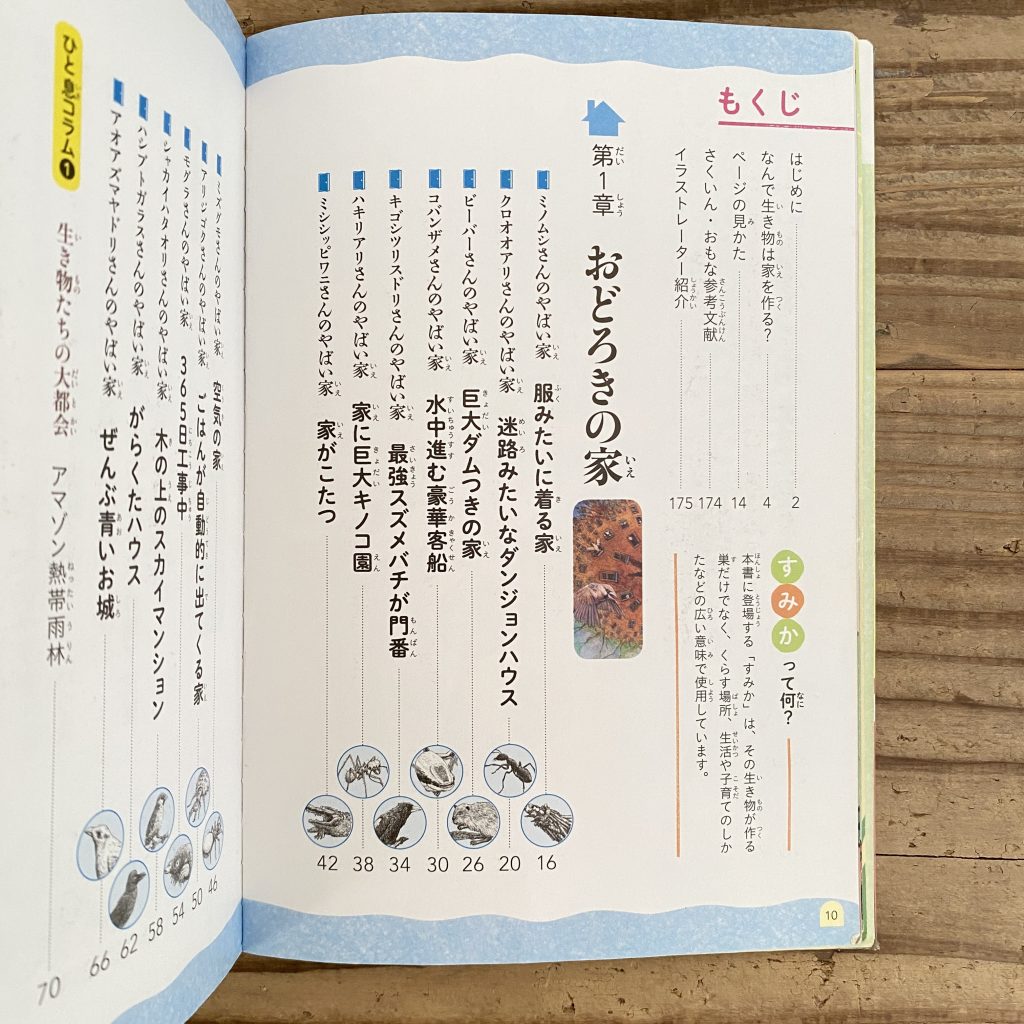 もくじ
はじめに 2
なんで生き物は家を作る? 4
ページの見かた 14
さくいん・おもな参考文献 174
イラストレーター紹介 175
すみかって何?
本書に登場する「すみか」は、その生き物が作る
巣だけでなく、くらす場所、生活や子育てのしか
たなどの広い意味で使用しています。
第1章 おどろきの家
ミノムシさんのやばい家 服みたいに着る家 16
クロオオアリさんのやばい家 迷路みたいなダンジョンハウス 20
ビーバーさんのやばい家 巨大ダムつきの家 26
コバンザメさんのやばい家 水中進む豪華客船 30
キゴシツリスドリさんのやばい家 最強スズメバチが門番 34
ハキリアリさんのやばい家 家に巨大キノコ園 38
ミシシッピワニさんのやばい家 家がこたつ 42
10
ミズグモさんのやばい家 空気の家 46
アリジゴクさんのやばい家 ごはんが自動的に出てくる家 50
モグラさんのやばい家 365日工事中 54
シャカイハタオリさんのやばい家 木の上のスカイマンション 58
ハシブトガラスさんのやばい家 がらくたハウス 62
アオアズマヤドリさんのやばい家 ぜんぶ青いお城 66
ひと息コラム1 生き物たちの大都会 アマゾン熱帯雨林 70